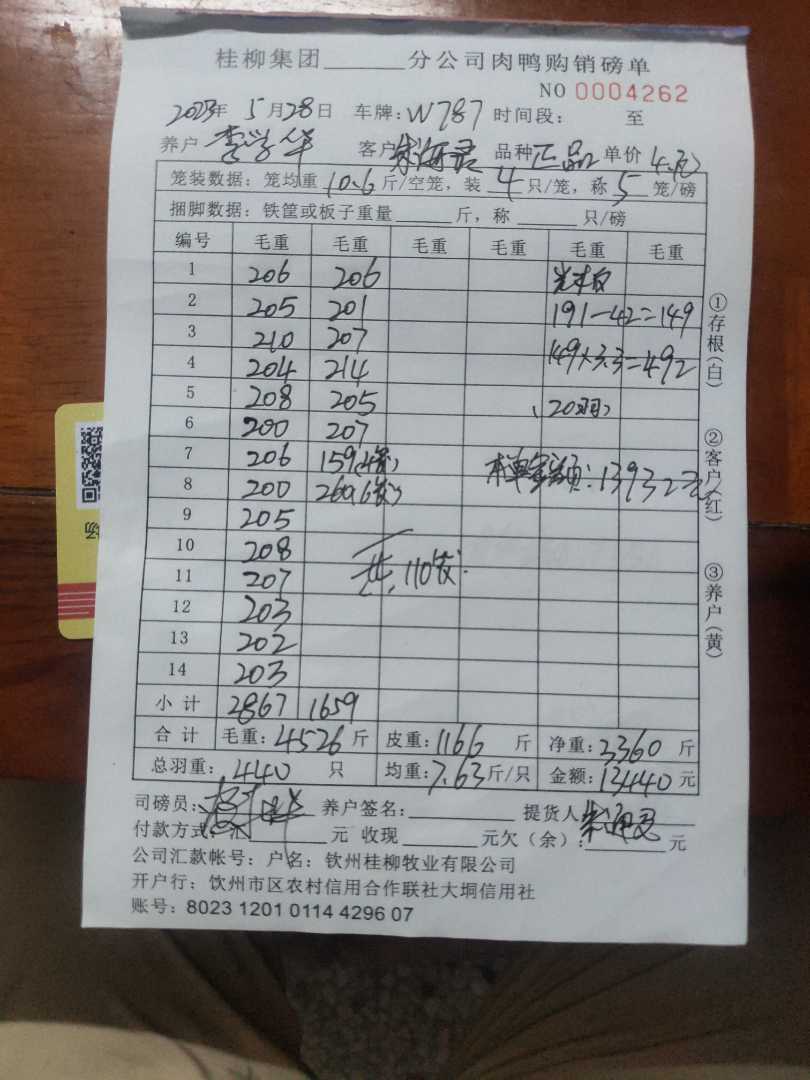 桂柳集团______分公司肉鸭购销磅单
NO 0004262
2023年 5月28日 车牌:W787 时间段: 至
养户 李学华 客户 品种 正品 单价 4.0元
笼装数据:笼均重 10.6 斤/空笼,装 4 只/笼,称 5 笼/磅
捆脚数据:铁筐或板子重量______斤,称______只/磅
编号 毛重 毛重 毛重 毛重 毛重 毛重
1 206 206
2 205 201 191-42=149
3 210 207
4 204 214 149×3.3=492
5 208 205 (20羽)
6 200 207
7 206 159(4笼) 本单金额:13932元
8 200 260(6笼)
9 205
10 208
11 207 共110笼.
12 203
13 202
14 203
小计 2867 1659
合计 毛重:4526斤 皮重:1166 斤 净重:3360斤
总羽重:440 只 均重:7.63斤/只 金额:13440元
司磅员: 养户签名:______ 提货人
付款方式: 元 收现______元欠(余):______元
公司汇款帐号:户名:钦州桂柳牧业有限公司
开户行:饮州市区农村信用合作联社大垌信用社
账号:8023 1201 0114 4296 07
①存根(白)
②客户(红)
③养户(黄)
场